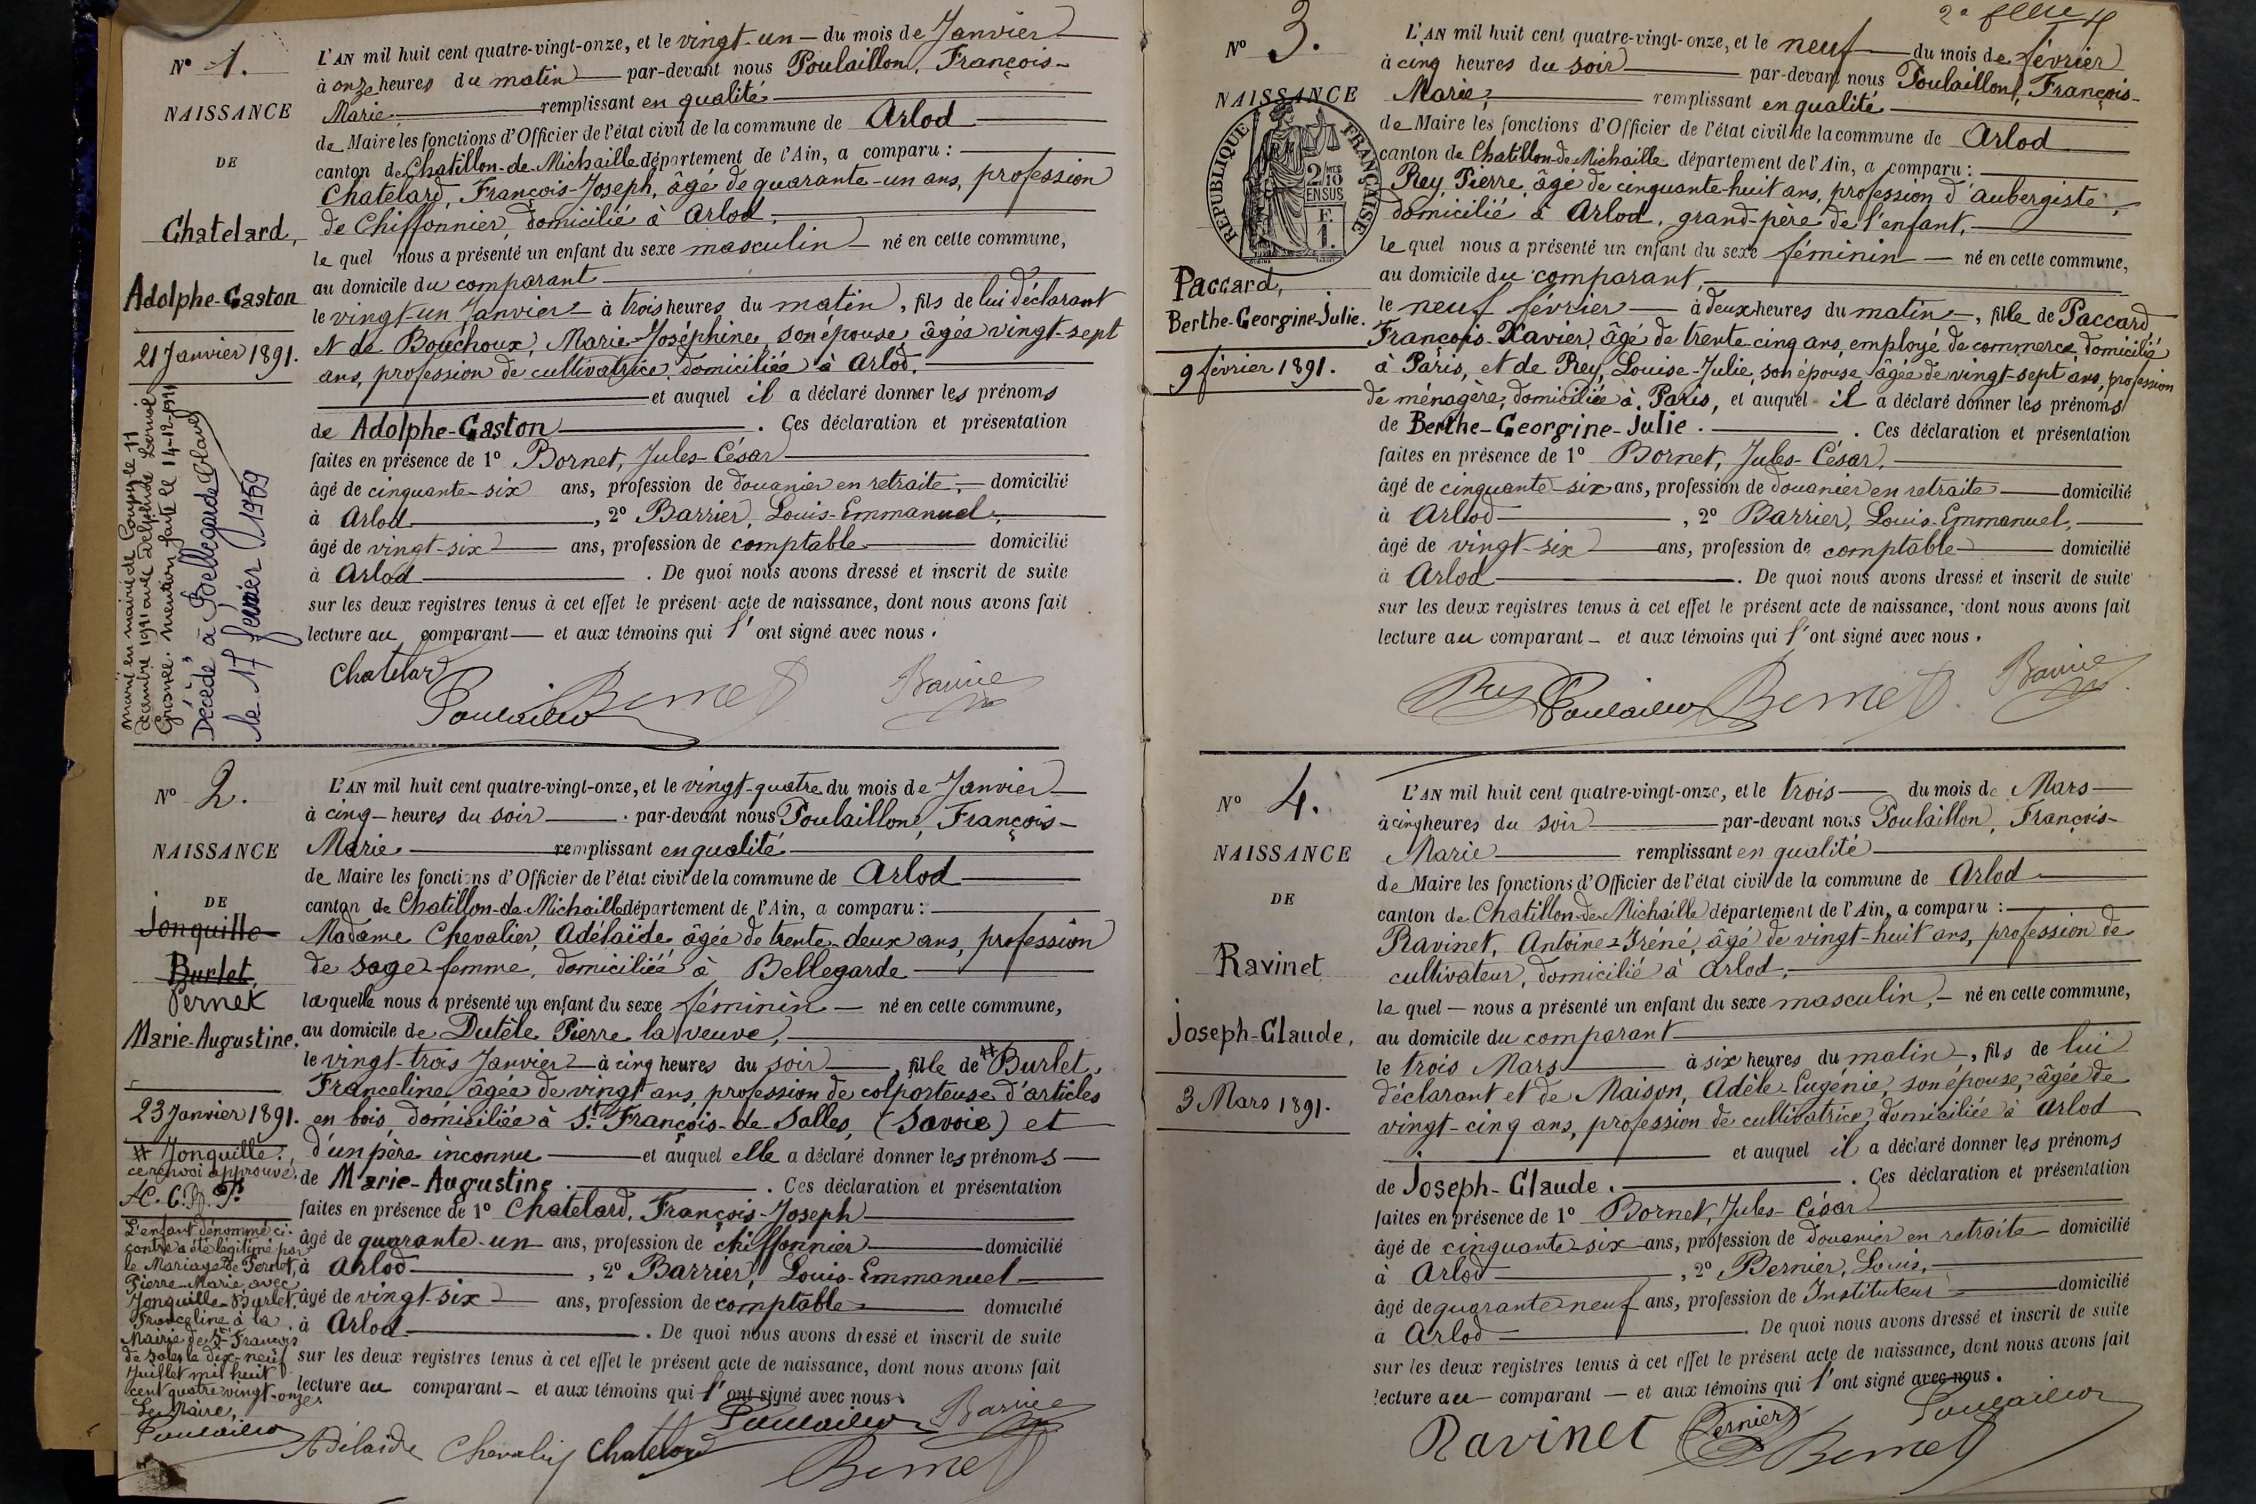 N° 1.
NAISSANCE
DE
Chatelard,
Adolphe-Gaston
21 Janvier 1891.
marié en mairie de Coupy le 11
décembre 1911 avec Delphine
mention faite le 14-12-1911
Décédé à Bellegarde
le 17 février 1959
L'AN mil huit cent quatre-vingt-onze, et le vingt-un — du mois de Janvier
à onze heures du matin — par-devant nous Poulaillon, François-
Marie, — remplissant en qualité
de Maire les fonctions d'Officier de l'état civil de la commune de Arlod
canton de Chatillon-de-Michaille département de l'Ain, a comparu :
Chatelard, François-Joseph, âgé de quarante-un ans, profession
de Chiffonnier, domicilié à Arlod,
le quel nous a présenté un enfant du sexe masculin — né en cette commune,
au domicile du comparant
le vingt-un Janvier — à trois heures du matin, fils de lui déclarant
et de Bouchoux, Marie-Joséphine, son épouse, âgée vingt-sept
ans, profession de cultivatrice, domiciliée à Arlod.
et auquel il a déclaré donner les prénoms
de Adolphe-Gaston — . Ces déclaration et présentation
faites en présence de 1° Bornet, Jules-César
âgé de cinquante-six ans, profession de douanier en retraite, — domicilié
à Arlod — , 2° Barrier, Louis-Emmanuel,
âgé de vingt-six — ans, profession de comptable — domicilié
à Arlod — . De quoi nous avons dressé et inscrit de suite
sur les deux registres tenus à cet effet le présent acte de naissance, dont nous avons fait
lecture au comparant — et aux témoins qui l'ont signé avec nous.
Chatelard
Poulaillon Bornet Barrier
N° 2.
NAISSANCE
DE
Jonquille
Burlet,
Pernet
Marie-Augustine.
23 Janvier 1891.
# Jonquille.,
ce renvoi approuvé.
A.C. B. P.
L'enfant dénommé ci-
contre a été légitimé par
le Mariage de Pernet,
Pierre-Marie avec
Jonquille-Burlet,
Francéline à la
Mairie de St François
de Sales le dix-neuf
Juillet mil huit
cent quatre vingt-onze.
Le Maire,
Poulaillon
L'AN mil huit cent quatre-vingt-onze, et le vingt-quatre du mois de Janvier
à cinq — heures du soir — par-devant nous Poulaillon, François-
Marie — remplissant en qualité
de Maire les fonctions d'Officier de l'état civil de la commune de Arlod
canton de Chatillon-de-Michaille département de l'Ain, a comparu :
Madame Chevalier, Adélaïde, âgée de trente-deux ans, profession
de sage-femme, domiciliée à Bellegarde
laquelle nous a présenté un enfant du sexe féminin — né en cette commune,
au domicile de Dutèle Pierre la veuve,
le vingt-trois Janvier — à cinq heures du soir — , fille de # Burlet,
Francéline, âgée de vingt ans, profession de colporteuse d'articles
en bois, domiciliée à St François-de-Salles, (Savoie) et
d'un père inconnu — et auquel elle a déclaré donner les prénoms —
de Marie-Augustine. — . Ces déclaration et présentation
faites en présence de 1° Chatelard, François-Joseph
âgé de quarante-un ans, profession de chiffonnier — domicilié
à Arlod — , 2° Barrier, Louis-Emmanuel
âgé de vingt-six — ans, profession de comptable — domicilié
à Arlod — . De quoi nous avons dressé et inscrit de suite
sur les deux registres tenus à cet effet le présent acte de naissance, dont nous avons fait
lecture au comparant — et aux témoins qui l'ont signé avec nous.
Poulaillon Barrier
Adélaïde Chevalier Chatelard
Bornet
N° 3.
NAISSANCE
RÉPUBLIQUE FRANÇAISE
2/10
EN SUS
Paccard,
Berthe-Georgine-Julie.
9 février 1891.
L'AN mil huit cent quatre-vingt-onze, et le neuf — du mois de février
à cinq heures du soir — par-devant nous Poulaillon, François-
Marie, — remplissant en qualité
de Maire les fonctions d'Officier de l'état civil de la commune de Arlod
canton de Chatillon-de-Michaille département de l'Ain, a comparu :
Rey, Pierre, âgé de cinquante-huit ans, profession d'aubergiste,
domicilié à Arlod, grand-père de l'enfant,
le quel nous a présenté un enfant du sexe féminin — né en cette commune,
au domicile du comparant,
le neuf février — à deux heures du matin —, fille de Paccard,
François-Xavier, âgé de trente cinq ans, employé de commerce, domicilié
à Paris, et de Rey, Louise-Julie, son épouse, âgée de vingt-sept ans, profession
de ménagère, domiciliée à Paris, et auquel il a déclaré donner les prénoms
de Berthe-Georgine-Julie. — . Ces déclaration et présentation
faites en présence de 1° Bornet, Jules-César,
âgé de cinquante-six ans, profession de douanier en retraite — domicilié
à Arlod — , 2° Barrier, Louis-Emmanuel,
âgé de vingt-six — ans, profession de comptable — domicilié
à Arlod — . De quoi nous avons dressé et inscrit de suite
sur les deux registres tenus à cet effet le présent acte de naissance, dont nous avons fait
lecture au comparant — et aux témoins qui l'ont signé avec nous.
Rey Poulaillon Bornet Barrier
N° 4.
NAISSANCE
DE
Ravinet
Joseph-Claude,
3 Mars 1891.
L'AN mil huit cent quatre-vingt-onze, et le trois — du mois de Mars —
à cinq heures du soir — par-devant nous Poulaillon, François-
Marie — remplissant en qualité
de Maire les fonctions d'Officier de l'état civil de la commune de Arlod
canton de Chatillon-de-Michaille département de l'Ain, a comparu :
Ravinet, Antoine-Iréné, âgé de vingt-huit ans, profession de
cultivateur, domicilié à Arlod,
le quel — nous a présenté un enfant du sexe masculin, — né en cette commune,
au domicile du comparant
le trois Mars — à six heures du matin —, fils de lui
déclarant et de Maison, Adèle-Eugénie, son épouse, âgée de
vingt-cinq ans, profession de cultivatrice, domiciliée à Arlod
et auquel il a déclaré donner les prénoms
de Joseph-Claude. — . Ces déclaration et présentation
faites en présence de 1° Bornet, Jules-César
âgé de cinquante-six ans, profession de douanier en retraite — domicilié
à Arlod — , 2° Bernier, Louis,
âgé de quarante-neuf ans, profession de Instituteur — domicilié
à Arlod — . De quoi nous avons dressé et inscrit de suite
sur les deux registres tenus à cet effet le présent acte de naissance, dont nous avons fait
lecture au — comparant — et aux témoins qui l'ont signé avec nous.
Ravinet Bernier Poulaillon
Bornet